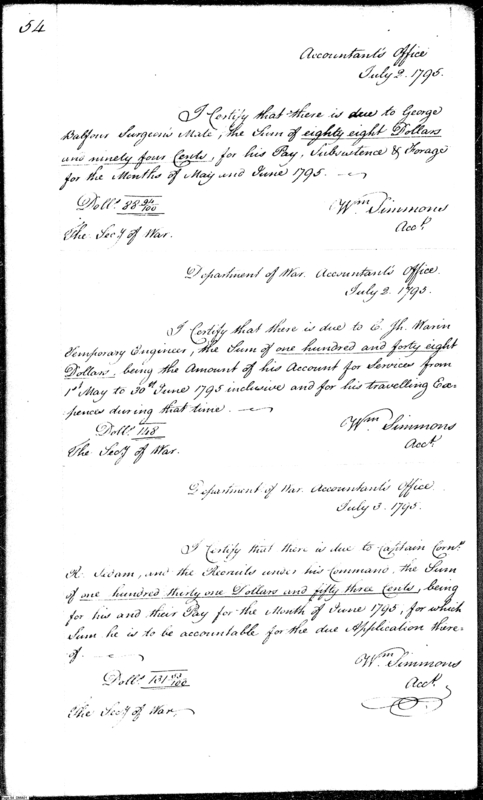 54
Accountant's Office
July 2. 1795.
I Certify that there is due to George
Balfour Surgeon's Mate, the Sum of eighty eight Dollars
and ninety four Cents, for his Pay, Subsistence & Forage
for the Months of May and June 1795.
Doll.s 88 94/100
Wm Simmons
Acct.
The Secy of War.
Department of War Accountant's Office
July 2. 1795.
I Certify that there is due to E. Jh. Warin
Temporary Engineer, the Sum of one hundred and forty eight
Dollars, being the Amount of his Account for Services from
1st May to 30th June 1795 inclusive and for his travelling Ex=
pences during that time.
Doll.s 148
Wm Simmons
Acct.
The Secy of War.
Department of War Accountant's Office
July 3. 1795.
I Certify that there is due to Captain Corns.
R. Sedam, and the Recruits under his Command, the Sum
of one hundred thirty one Dollars and fifty three Cents, being
for his and their Pay for the Month of June 1795, for which
Sum he is to be accountable for the due Application there-
of
Doll.s 131 53/100
Wm Simmons
Acct.
The Secy of War.